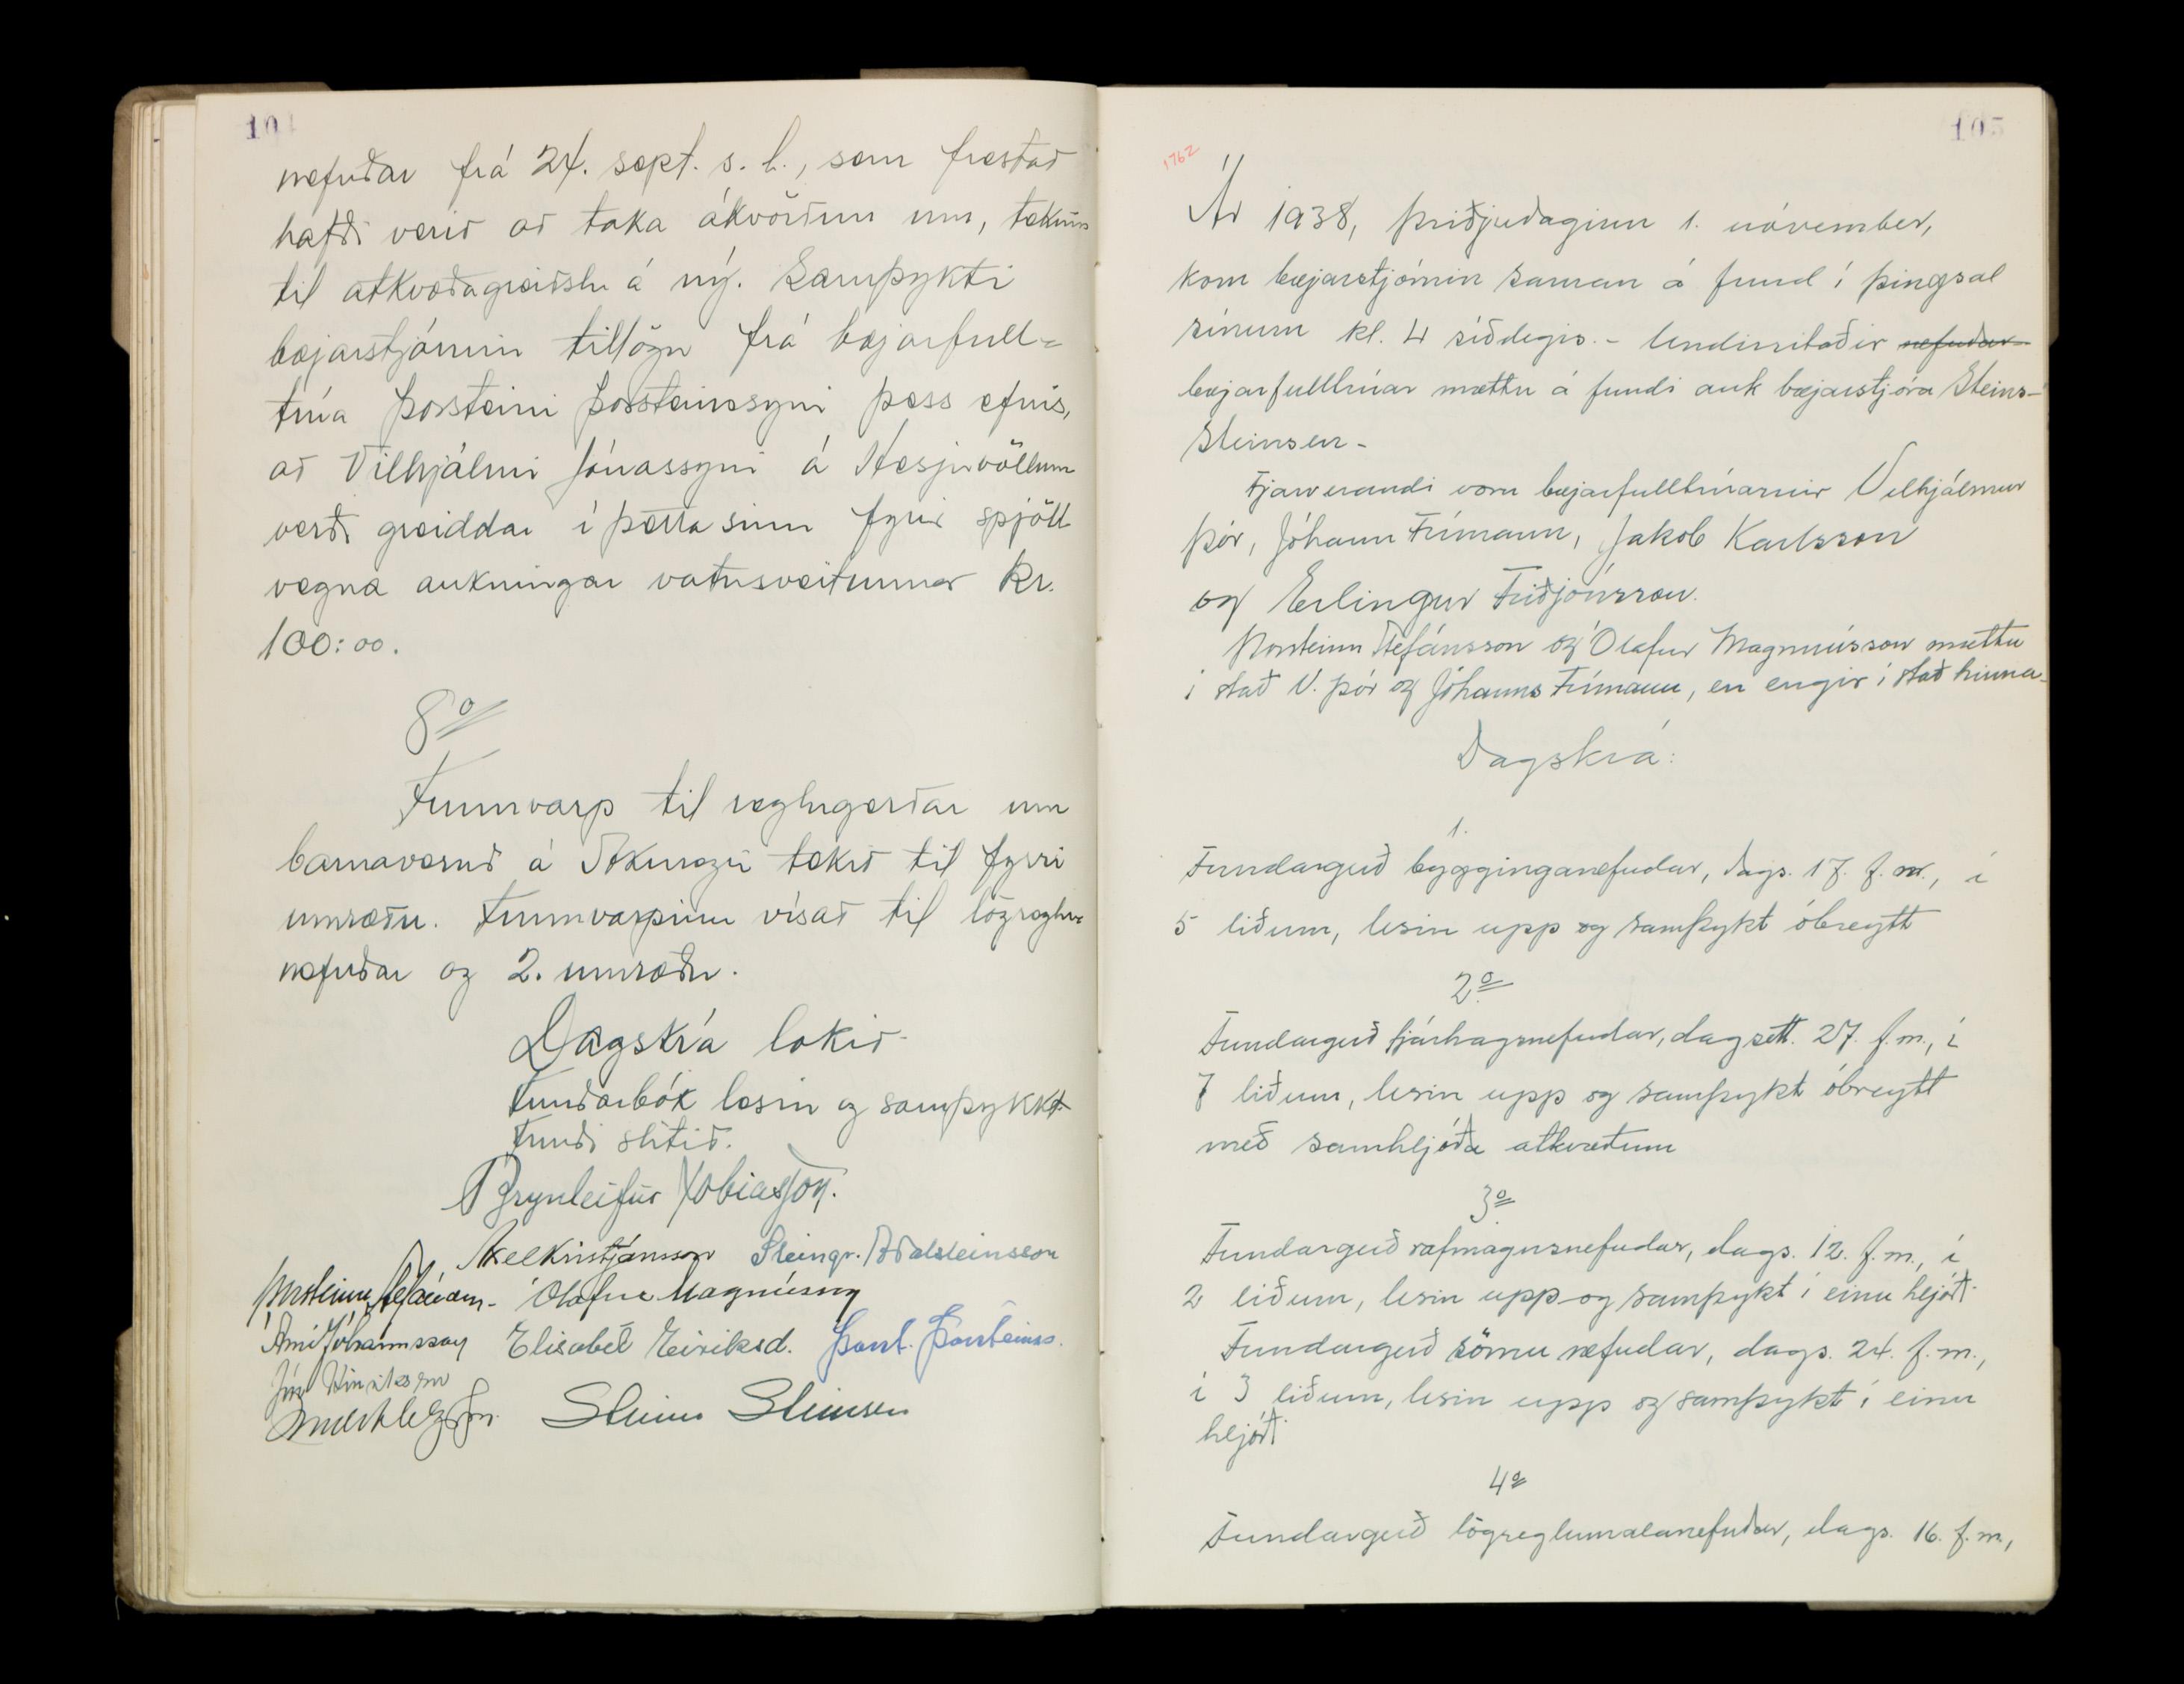 104
nefndar frá 24. sept. s. l., sem frestað
hafði verið að taka ákvörðun um, tekin
til atkvæðagreiðslu á ný. Samþykti
bæjarstjórnin tillögu frá bæjarfull-
trúa Þorsteini Þorsteinssyni þess efnis,
að Vilhjálmi Jónassyni á Hesjuvöllum
verði greiddar í þetta sinn fyrir spjöll
vegna aukningar vatnsveitunnar kr.
100:00.
8º
Frumvarp til reglugerðar um
barnavernd á Akureyri tekið til fyrri
umræðu. Frumvarpinu vísað til lögreglu-
nefndar og 2. umræðu.
Dagskrá lokið.
Fundarbók lesin og samþykkt
Fundi slitið.
Brynleifur Tobiasson.
Axel Kristjánsson Steingr. Aðalsteinsson
Þorsteinn Stefánsson Ólafur Magnússon
Árni Jóhannsson Elísabet Eiríksd. Þorst. Þorsteinss.
Jón Hinriksson
Steinn Steinsen
105
1762
Ár 1938, þriðjudaginn 1. nóvember,
kom bæjarstjórnin saman á fund í þingsal
sínum kl. 4 síðdegis. - Undirritaðir nefndar
bæjarfulltrúar mættu á fundi auk bæjarstjóra Steins-
Steinsen -
Fjarverandi voru bæjarfulltrúarnir Vilhjálmur
Þór, Jóhann Frímann, Jakob Karlsson
og Erlingur Friðjónsson.
Þorsteinn Stefánsson og Ólafur Magnússon mættu
í stað V. Þór og Jóhanns Frímann, en engir í stað hinna.
Dagskrá:
1.
Fundargerð bygginganefndar, dags. 17. f. m., í
5 liðum, lesin upp og samþykt óbreytt
2º
Fundargerð fjárhagsnefndar, dagsett. 27. f. m., í
7 liðum, lesin upp og samþykt óbreytt
með samhljóða atkvæðum
3º
Fundargerð rafmagnsnefndar, dags. 12. f. m., í
2 liðum, lesin upp og samþykt í einu hljóði.
Fundargerð sömu nefndar, dags. 24. f. m.,
í 3 liðum, lesin upp og samþykt í einu
hljóði
4º
Fundargerð lögreglumálanefndar, dags. 16. f. m.,